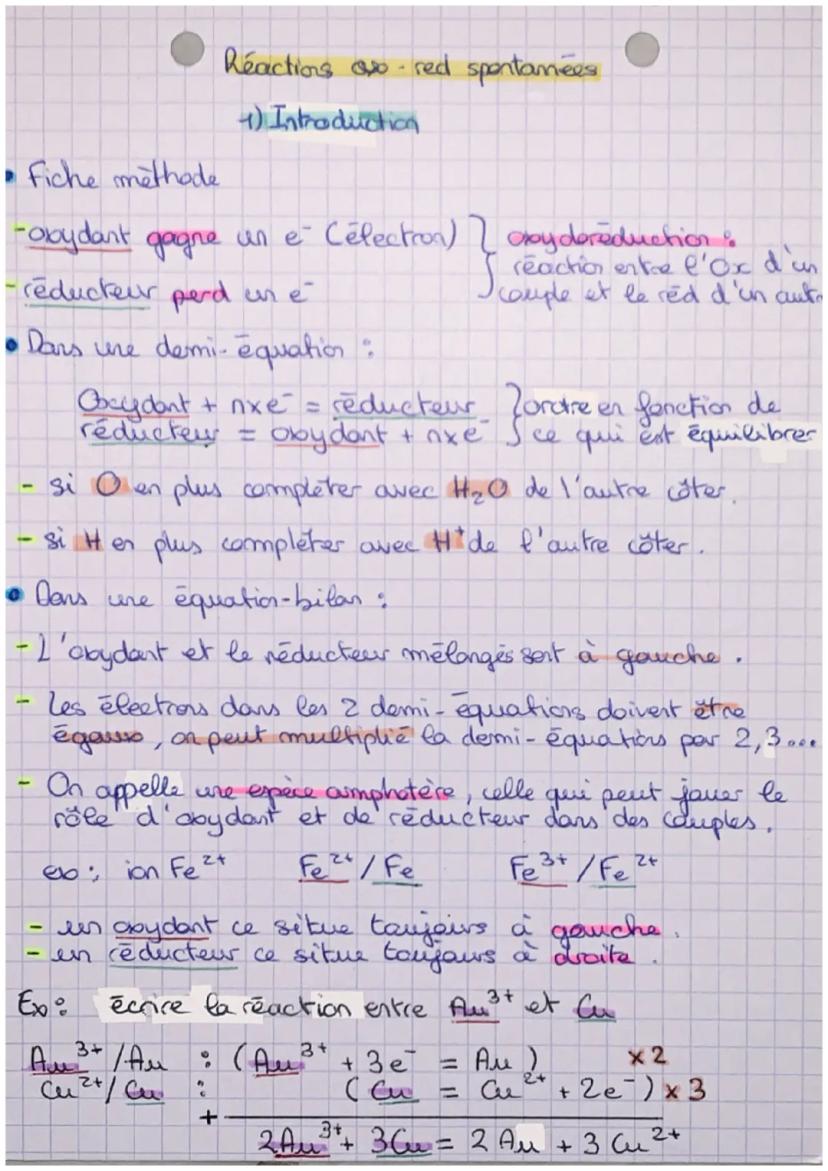 Réactions oxo-red spontanées
1) Introduction
• Fiche méthode
- oxydant gagne un e⁻ (électron) } oxydoréduction :
réaction entre l'Ox d'un
- réducteur perd un e⁻ couple et le réd d'un autr
• Dans une demi-équation :
Oxcydant + nxe⁻ = réducteur } ordre en fonction de
réducteur = oxydant + nxe⁻ ce qui est équilibrer
- si O en plus compléter avec H₂O de l'autre côter.
- si H en plus compléter avec H⁺ de l'autre côter.
• Dans une équation-bilan :
- L'oxydant et le réducteur mélangés sont à gauche.
- Les électrons dans les 2 demi-équations doivent être
égaux, on peut multiplié la demi-équations par 2,3...
- On appelle une espèce amphotère, celle qui peut jouer le
rôle d'oxydant et de réducteur dans des couples.
ex : ion Fe²⁺ Fe²⁺/Fe Fe³⁺/Fe²⁺
- un oxydant ce situe toujours à gauche.
- un réducteur ce situe toujours à droite.
Ex : écrire la réaction entre Au³⁺ et Cu
Au³⁺/Au : (Au³⁺ + 3e⁻ = Au) x2
Cu²⁺/Cu : (Cu = Cu²⁺ + 2e⁻) x3
+
2Au³⁺ + 3Cu = 2Au + 3Cu²⁺